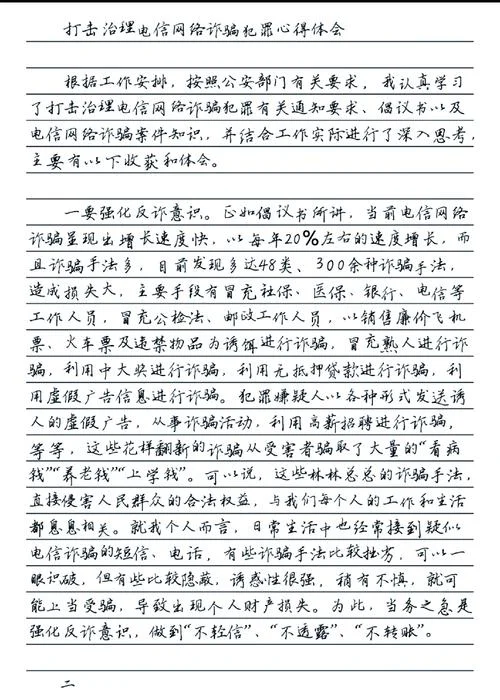 打击治理电信网络诈骗犯罪心得体会
根据工作安排，按照公安部门有关要求，我认真学习
了打击治理电信网络诈骗犯罪有关通知要求、倡议书以及
电信网络诈骗案件知识，并结合工作实际进行了深入思考，
主要有以下收获和体会。
一要强化反诈意识。正如倡议书所讲，当前电信网络
诈骗呈现出增长速度快，以每年20%左右的速度增长，而
且诈骗手法多，目前发现多达48类、300余种诈骗手法，
造成损失大，主要手段有冒充社保、医保、银行、电信等
工作人员，冒充公检法、邮政工作人员，以销售廉价飞机
票、火车票及违禁物品为诱饵进行诈骗，冒充熟人进行诈
骗，利用中大奖进行诈骗，利用无抵押贷款进行诈骗，利
用虚假广告信息进行诈骗。犯罪嫌疑人以各种形式发送诱
人的虚假广告，从事诈骗活动，利用高薪招聘进行诈骗，
等等，这些花样翻新的诈骗从受害者骗取了大量的“看病
钱”“养老钱”“上学钱”。可以说，这些林林总总的诈骗手法，
直接侵害人民群众的合法权益，与我们每个人的工作和生活
都息息相关。就我个人而言，日常生活中也经常接到疑似
电信诈骗的短信、电话，有些诈骗手法比较拙劣，可以一
眼识破，但有些比较隐蔽，诱惑性很强，稍有不慎，就可
能上当受骗，导致出现个人财产损失。为此，当务之急是
强化反诈意识，做到“不轻信”、“不透露”、“不转账”。
二